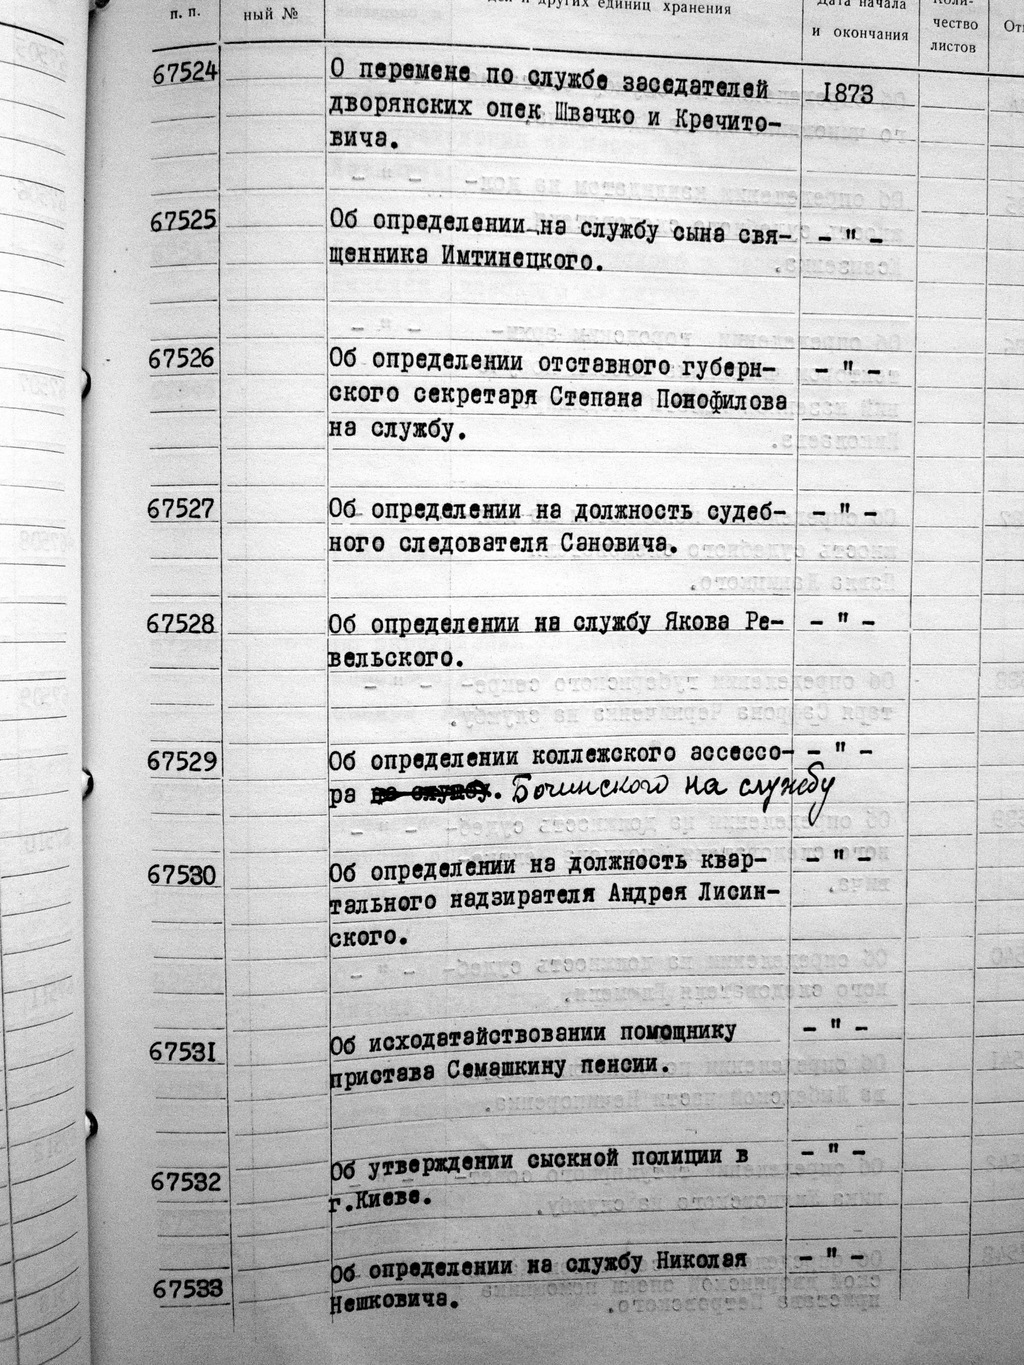 п. п.
ный №
и других единиц хранения
Дата начала
и окончания
чество
листов
67524
О перемене по службе заседателей
1873
дворянских опек Швачко и Кречито-
вича.
67525
Об определении на службу сына свя-
- " -
щенника Имтинецкого.
67526
Об определении отставного губерн-
- " -
ского секретаря Степана Понофилова
на службу.
67527
Об определении на должность судеб-
- " -
ного следователя Сановича.
67528
Об определении на службу Якова Ре-
- " -
вельского.
67529
Об определении коллежского ассессо-
- " -
ра на службу. Бочинского на службу
67530
Об определении на должность квар-
- " -
тального надзирателя Андрея Лисин-
ского.
67531
Об исходатайствовании помощнику
- " -
пристава Семашкину пенсии.
67532
Об утверждении сыскной полиции в
- " -
г.Киеве.
67533
Об определении на службу Николая
- " -
Нешковича.